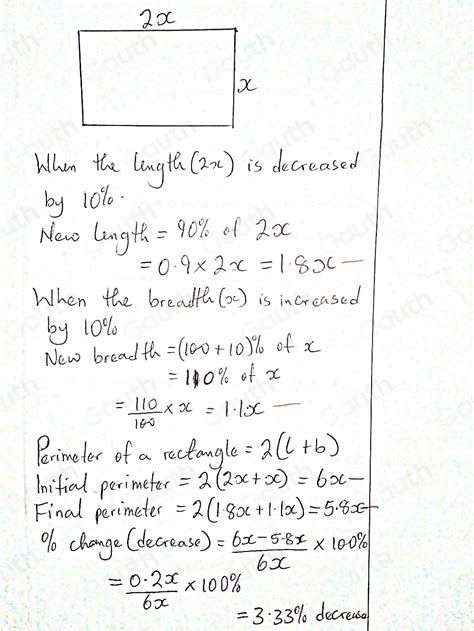 2x
x
When the length (2x) is decreased
by 10%.
New length = 90% of 2x
= 0.9 × 2x = 1.8x —
When the breadth (x) is increased
by 10%
New breadth = (100 + 10)% of x
= 110% of x
= 110/100 × x = 1.1x —
Perimeter of a rectangle = 2(l + b)
Initial perimeter = 2(2x + x) = 6x —
Final perimeter = 2(1.8x + 1.1x) = 5.8x —
% change (decrease) = 6x - 5.8x / 6x × 100%
= 0.2x / 6x × 100%
= 3.33% decrease